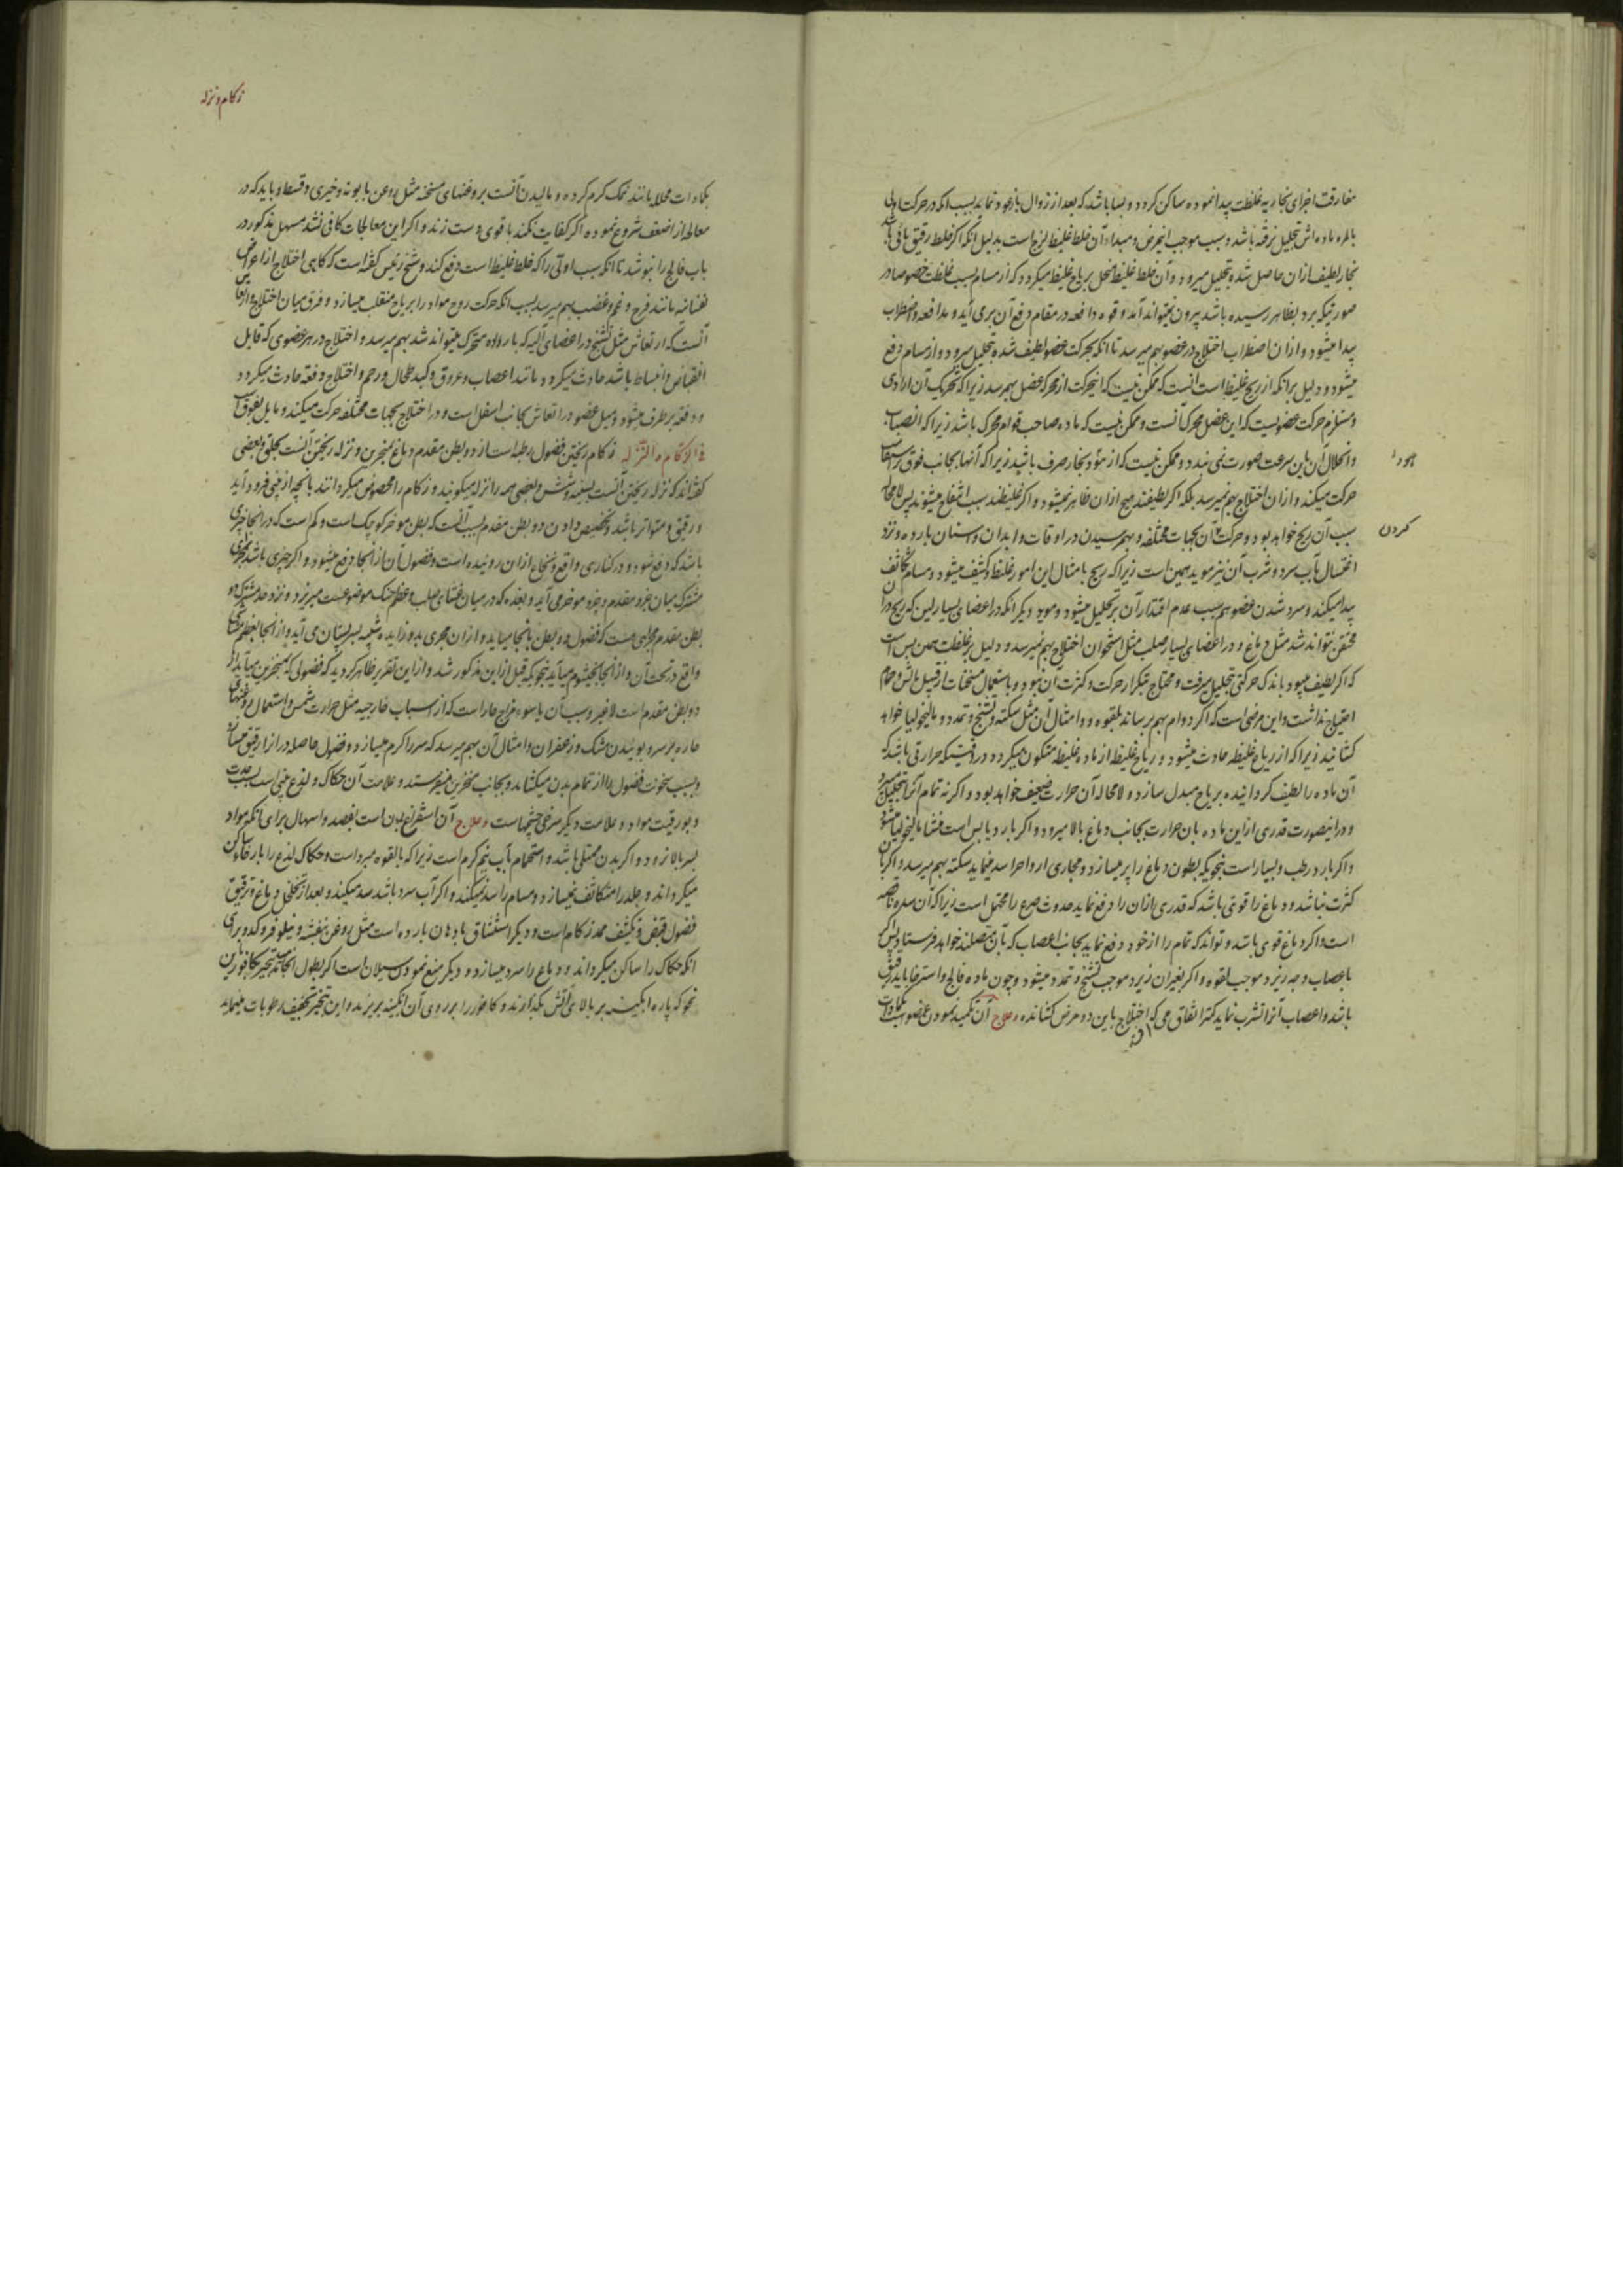 مفارقت اجزای بخاریه غلظت پیدا نموده ساکن کردد و بسا باشد که بعد از زوال باز عود نماید بسبب انکه در حرکت اولی
بالمره ماده اش تحلیل نرفته باشد و سبب موجب اینمرض و مبداء آن خلط غلیظ لزج است بدلیل انکه اکر خلط رقیق باشد
بخار لطیف ازان حاصل شده بتحلیل میرود و آن خلط غلیظ منحل بریاح غلیظ میکردد که از مسام بسبب غلظت خصوصا در
صورتیکه برد بظاهر رسیده باشد بیرون نمیتواند آمد و قوه دافعه در مقام دفع آن برمی آید و مدافعه و اضطراب
پیدا میشود و ازان اضطراب اختلاج در عضو بهم میرسد تا انکه بحرکت عضو لطیف شده بتحلیل میرود و از مسام دفع
میشود و دلیل برانکه از ریح غلیظ است آنست که ممکن نیست که اینحرکت از محرکه عضل بهم رسد زیرا که تحریک آن ارادی
و مستلزم حرکت عضویست که این عضل محرک آنست و ممکن نیست که ماده صاحب قوام محرک باشد زیرا که انصباب
و انحلال آن باین سرعت صورت نمی بندد و ممکن نیست که از بخار صرف باشد زیرا که آنها بجانب فوق
حرکت میکند و ازان اختلاج بهم نمیرسد بلکه اکر لطیفند هیچ ازان ظاهر نمیشود و اکر غلیظند سبب انتفاخ میشوند پس لامحاله
کردن
سبب آن ریح خواهد بود و حرکت آن بجهات مختلفه و بهم رسیدن در اوقات و ابدان و اسنان بارده و نزد
اغتسال بآب سرد و شرب آن نیز موید همین است زیرا که ریح بامثال این امور غلیظ و کثیف میشود و مسام تکاثف
پیدا میکند و سرد شدن عضو هم بسبب عدم اقتدار آن بر تحلیل میشود و موید دیکر انکه در اعضای بسیار لین که ریح در آن
محتقن نتواند شد مثل دماغ و در اعضای بسیار صلب مثل استخوان اختلاج بهم نمیرسد و دلیل بر غلظت همین بس است
که اکر لطیف میبود باندک حرکتی بتحلیل میرفت و محتاج بتکرار حرکت و کثرت آن نبود و باستعمال مسخنات از قبیل مالش و حمام
احتیاج نداشت و این مرضی است که اکر دوام بهم رساند بلقوه و امثال آن مثل سکته و تشنج و تمدد و مالیخولیا خواهد
کشانید زیرا که از ریاح غلیظه حادث میشود و ریاح غلیظ از ماده غلیظه متکون میکردد در وقتیکه حرارتی باشد که
آن ماده را لطیف کردانیده بریاح مبدل سازد و لامحاله آن حرارت ضعیف خواهد بود و اکرنه تمام آنرا بتحلیل میبرد
و درینصورت قدری ازاین ماده بان حرارت بجانب دماغ بالا میرود و اکر بارد یابس است منشا مالیخولیا میشود
و اکر بارد رطب و بسیار است بنحویکه بطون دماغ را پر میسازد و مجاری ارواح را سد مینماید سکته بهم میرسد و اکر بآن
کثرت نباشد و دماغ را قوتی باشد که قدری ازان را دفع نماید حدوث صرع را محتمل است زیرا که آن سده ناقصه
است و اکر دماغ قوی باشد و تواند که تمام را از خود دفع نماید بجانب اعصاب که بآن متصلند خواهد فرستاد پس اکر
باعصاب وجه ریزد موجب لقوه و اکر بغیر آن ریزد موجب تشنج و تمدد میشود و چون ماده فالج و استرخا باید رقیق
باشد و اعصاب آنرا تشرب نماید کمتر اتفاق می افتد که اختلاج باین دو مرض کشانده و علاج آن تکمید نمودن عضو است
بکمادات محلله مانند نمک کرم کرده و مالیدن آنست بروغنهای مسخنه مثل روغن بابونه و خیری و قسط و باید که در
معالجه از اضعف شروع نموده اکر کفایت نکند باقوی دست زند و اکر این معالجات کافی نشد مسهل مذکور در
باب فالج را بنوشد تا انکه سبب اولی را که خلط غلیظ است دفع کند و شیخ رئیس کفته است که کاهی اختلاج از اعراض
نفسانیه مانند فرح و غم و غضب بهم میرسد بسبب انکه حرکت روح مواد را بریاح منقلب میسازد و فرق میان اختلاج و ارتعاش
آنست که ارتعاش مثل تشنج در اعضای آلیه که باراده متحرک میتواند شد بهم میرسد و اختلاج در هر عضوی که قابل
انقباض و انبساط باشد حادث میکردد مانند اعصاب و عروق و کبد و طحال و رحم و اختلاج دفعه حادث میکردد
و دفعه برطرف میشود و میل عضو در ارتعاش بجانب اسفل است و در اختلاج بجهات مختلفه حرکت میکند و مایل بفوق است
الزکام و النزله زکام ریختن فضول رطبه است از دو بطن مقدم دماغ بمنخرین و نزله ریختن آنست بحلق و بعضی
کفته اند که نزله ریختن آنست بسینه و شش و بعضی همه را نزله میکویند و زکام را مخصوص میکردانند بانچه از بینی فرود آید
و رقیق و متواتر باشد و تخصیص دادن دو بطن مقدم بسبب آنست که بطن موخر کوچک است و کم است که در انجا چیزی
باشد که دفع شود و در کناری واقع و نخاع ازان روئیده است و فضول آن از انجا دفع میشود و اکر چیزی باشد بمجری
مشترک میان جزو مقدم و جزو موخر می آید و بغده که در میان غشای صلب و عظم حنک موضوعست میریزد و نزد حد مشترک دو
بطن مقدم مجرائی هست که فضول دو بطن بانجا میاید و ازان مجری بدو زایده شبیه بسر پستان می آید و از انجا بعظم مصفات
واقع در تحت آن و از انجا بخیشوم میآید بنحویکه قبل ازین مذکور شد و از این تقریر ظاهر کردید که فضولی که بمنخرین میآید از
دو بطن مقدم است لاغیر و سبب آن یا سوء مزاج حار است که از اسباب خارجیه مثل حرارت شمس و استعمال روغنهای
حاره بر سر و بوئیدن مشک و زعفران و امثال آن بهم میرسد که سر را کرم میسازد و فضول حاصله در آنرا رقیق میسازد
و بسبب سخونت فضول را از تمام بدن میکشاند و بجانب منخرین میفرستد و علامت آن حکاک و لذع بینی است بسبب حدت
و بورقیت مواد و علامت دیکر سرخی چشمهاست و علاج آن استفراغ بدن است بفصد و اسهال برای انکه مواد
بسر بالا نرود و اکر بدن ممتلی باشد و استحمام بآب نیم کرم است زیرا که بالقوه مبرد است و حکاک و لذع را بارخاء ساکن
میکرداند و جلد را متکاثف نمیسازد و مسام را سد نمیکند و اکر آب سرد باشد سد میکند و بعد از تخلخل دماغ و ترقیق
فضول قبض و تکثیف ممد زکام است و دیکر استنشاق بادهان بارده است مثل روغن بنفشه و نیلوفر و کدو برای
انکه حکاک را ساکن میکرداند و دماغ را سرد میسازد و دیکر منع نمودن سیلان است اکر بطول انجامد بتبخیر کافور باین
نحو که پاره ابکینه بر بالای آتش بکذارند و کافور را بر روی آن ابکینه بریزند و این تبخیر تجفیف رطوبات مینماید
زکام و نزله